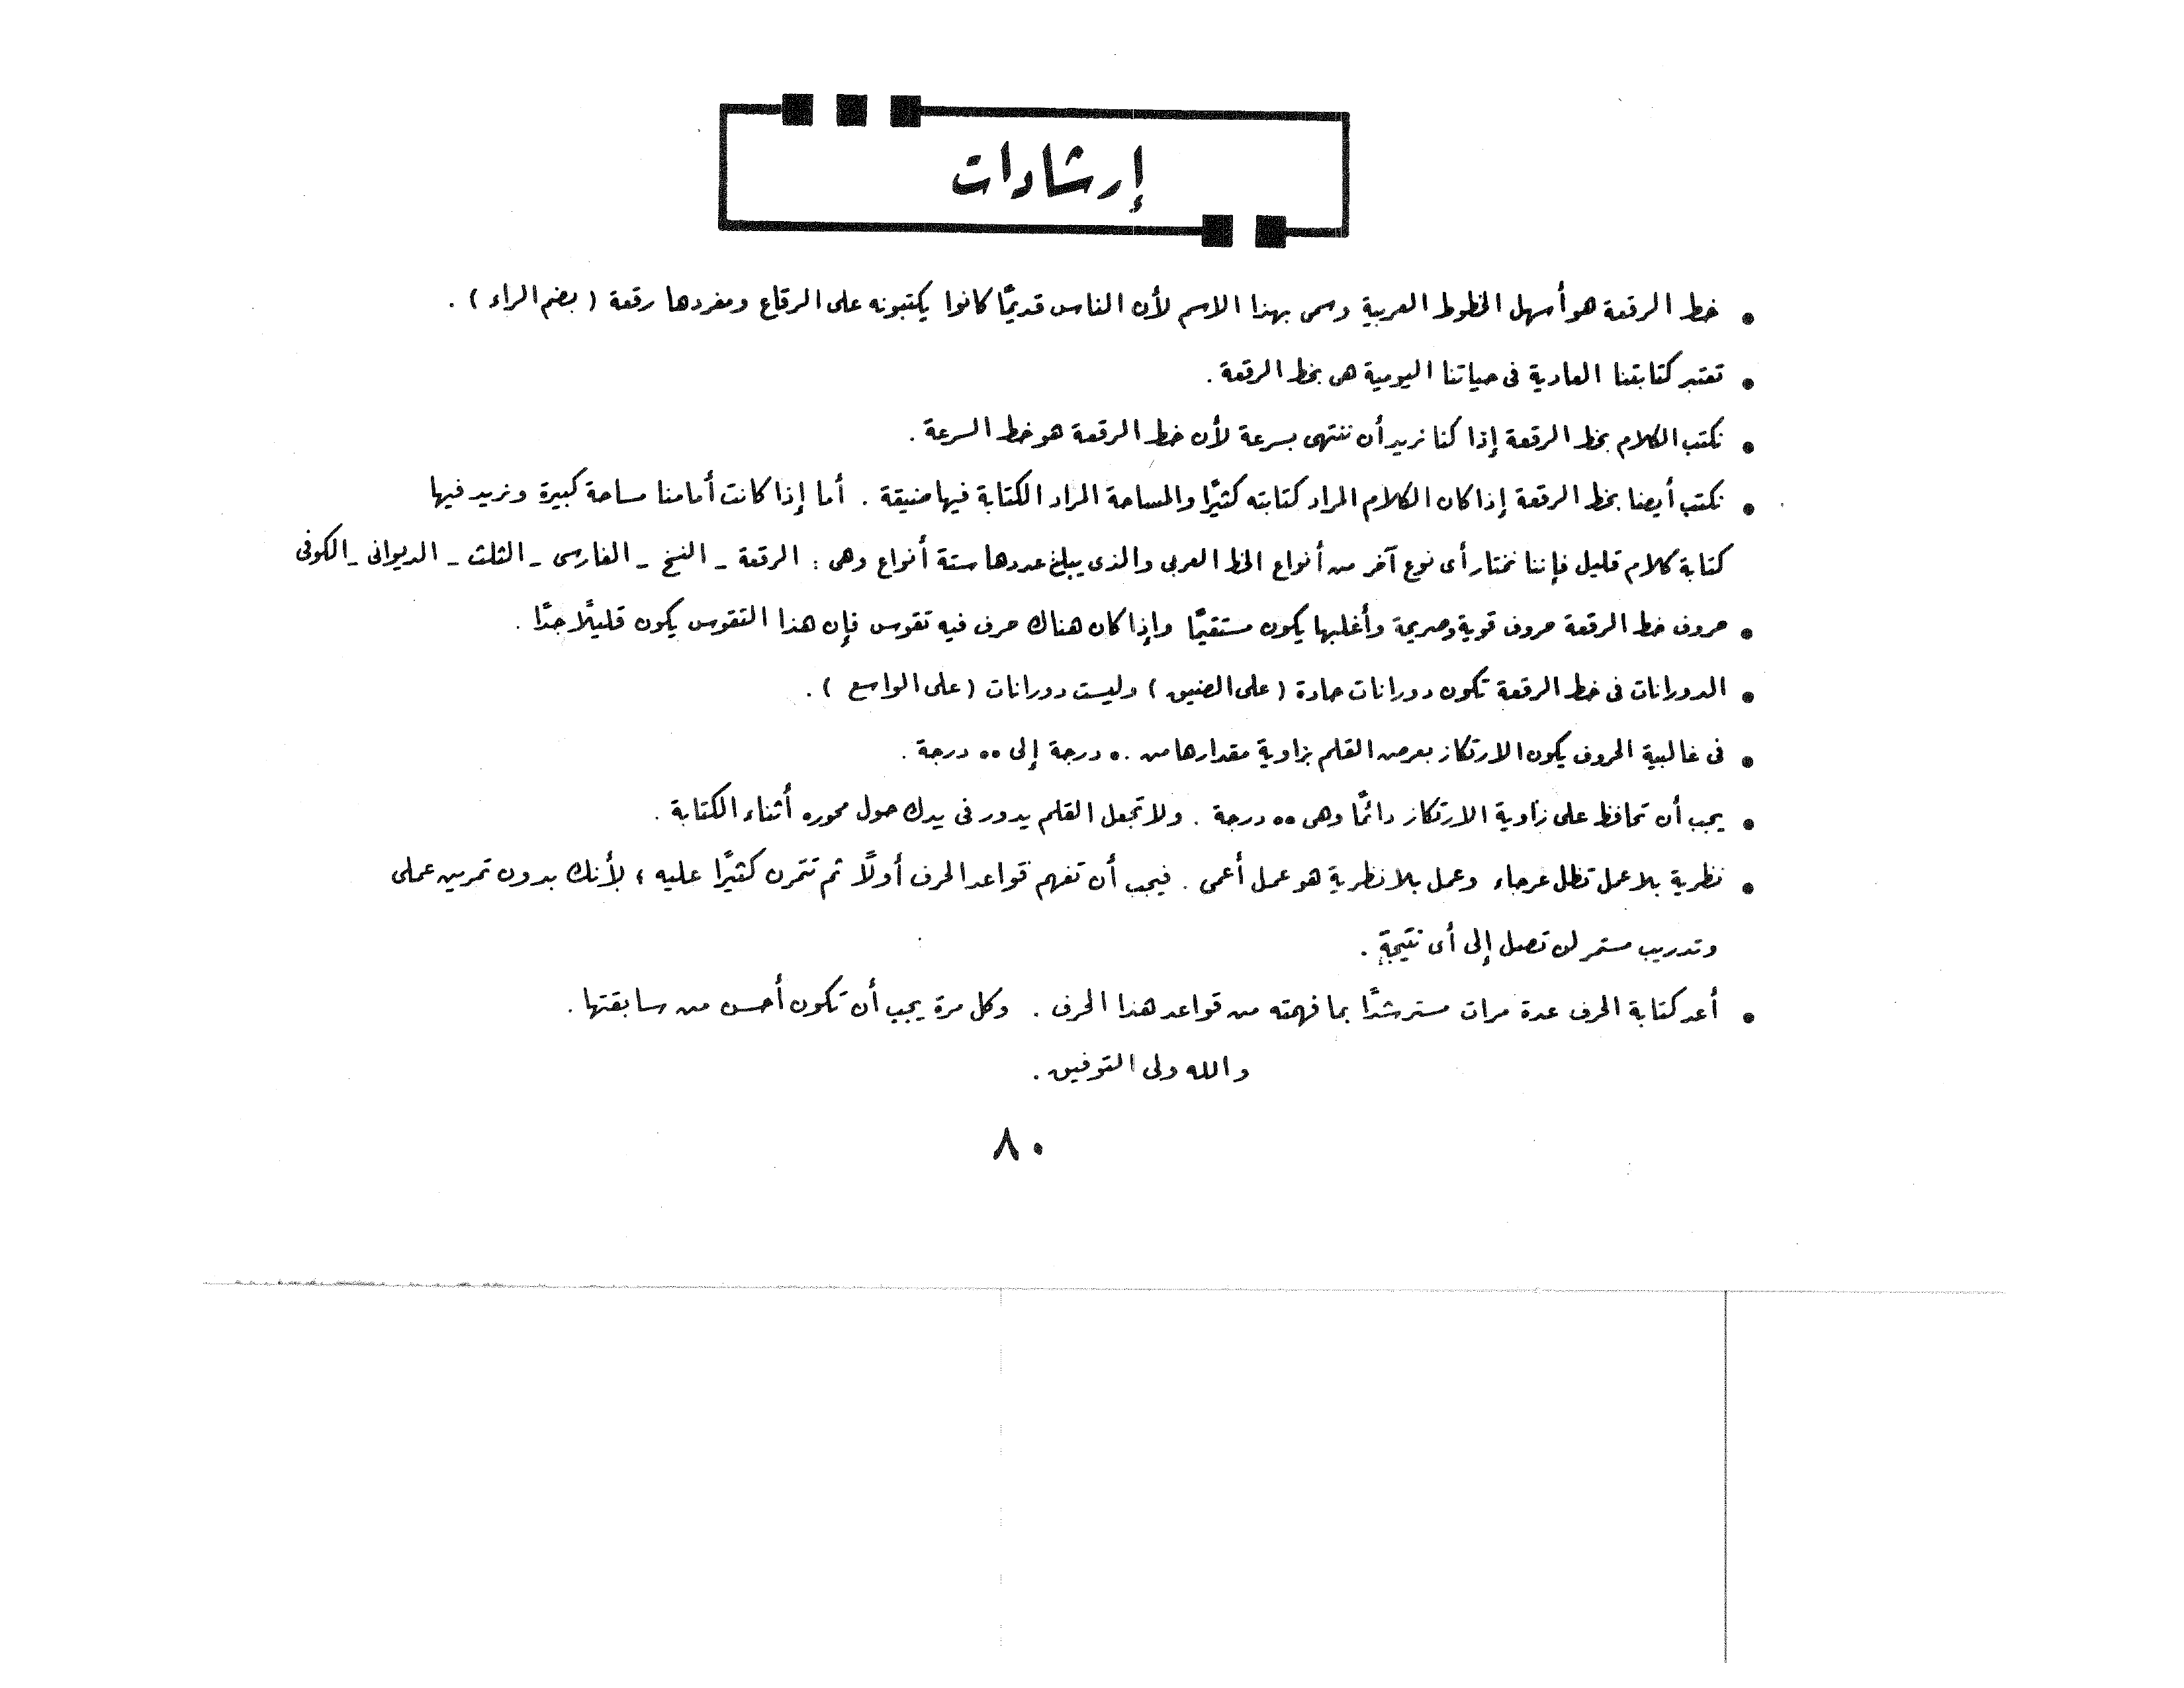 إرشادات
• خط الرقعة هو أسهل الخطوط العربية وسمى بهذا الاسم لأن الناس قديمًا كانوا يكتبونه على الرقاع ومفردها رقعة ( بضم الراء ) .
• تعتبر كتابتنا العادية فى حياتنا اليومية هى بخط الرقعة .
• نكتب الكلام بخط الرقعة إذا كنا نريد أن ننتهى بسرعة لأن خط الرقعة هو خط السرعة .
• نكتب أيضنا بخط الرقعة إذا كان الكلام المراد كتابته كثيرًا والمساحة المراد الكتابة فيها ضيقة . أما إذا كانت أمامنا مساحة كبيرة ونريد فيها
كتابة كلام قليل فإننا نختار أى نوع آخر من أنواع الخط العربى والذى يبلغ عددها ستة أنواع وهى : الرقعة ـ النسخ ـ الفارسى ـ الثلث ـ الديوانى ـ الكوفى
• حروف خط الرقعة حروف قوية وصريحة وأغلبها يكون مستقيمًا وإذا كان هناك حرف فيه تقوس فإن هذا التقوس يكون قليلًا جدًا .
• الدورانات فى خط الرقعة تكون دورانات حادة ( على الضيق ) وليست دورانات ( على الواسع ) .
• فى غالبية الحروف يكون الارتكاز بعرض القلم بزاوية مقدارها من ٥٠ درجة إلى ٥٥ درجة .
• يجب أن تحافظ على زاوية الارتكاز دائمًا وهى ٥٥ درجة . ولا تجعل القلم يدور فى يدك حول محوره أثناء الكتابة .
• نظرية بلا عمل تظل عرجاء وعمل بلا نظرية هو عمل أعمى . فيجب أن تفهم قواعد الحرف أولًا ثم تتمرن كثيرًا عليه ؛ لأنك بدون تمرين عملى
وتدريب مستمر لن تصل إلى أى نتيجة .
• أعد كتابة الحرف عدة مرات مسترشدًا بما فهمته من قواعد هذا الحرف . وكل مرة يجب أن تكون أحسن من سابقتها .
والله ولى التوفيق .
٨٠